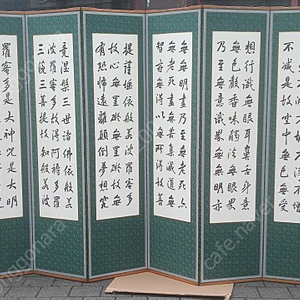 不減是故空中
想行識無眼耳鼻舌身意
無色聲香味觸法無眼界
乃至無意識界無無明亦
無無明盡乃至無老死亦
無老死盡無苦集滅道無
智亦無得以無所得故菩
提薩埵依般若波羅蜜多
故心無罣礙無罣礙故無
有恐怖遠離顛倒夢想究
竟涅槃三世諸佛依般若
波羅蜜多故得阿耨多羅
三藐三菩提故知般若波
羅蜜多是大神咒是大明
cafe.naver